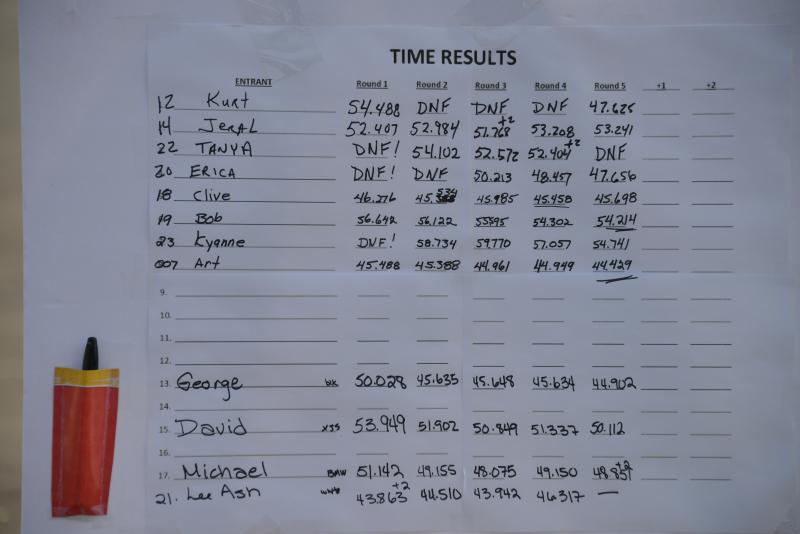 TIME RESULTS
ENTRANT Round 1 Round 2 Round 3 Round 4 Round 5 +1 +2
12 Kurt 54.488 DNF DNF DNF 47.625
14 JERAL 52.407 52.984 51.768 +2 53.208 53.241
22 TANYA DNF! 54.102 52.572 52.404 +2 DNF
20 ERICA DNF! DNF 50.213 48.457 47.656
18 Clive 46.276 45.534 45.985 45.458 45.698
19 Bob 56.642 56.122 55.895 54.302 54.214
23 Kyanne DNF! 58.734 59.770 57.057 54.741
007 Art 45.488 45.388 44.961 44.949 44.429
9.
10.
11.
12.
13. George 50.028 45.635 45.648 45.634 44.902
14.
15. David XJS 53.949 51.902 50.849 51.337 50.112
16.
17. Michael BMW 51.142 49.155 48.075 49.150 48.851 +2
21. Lee Ash 43.863 +2 44.510 43.942 46.317 —